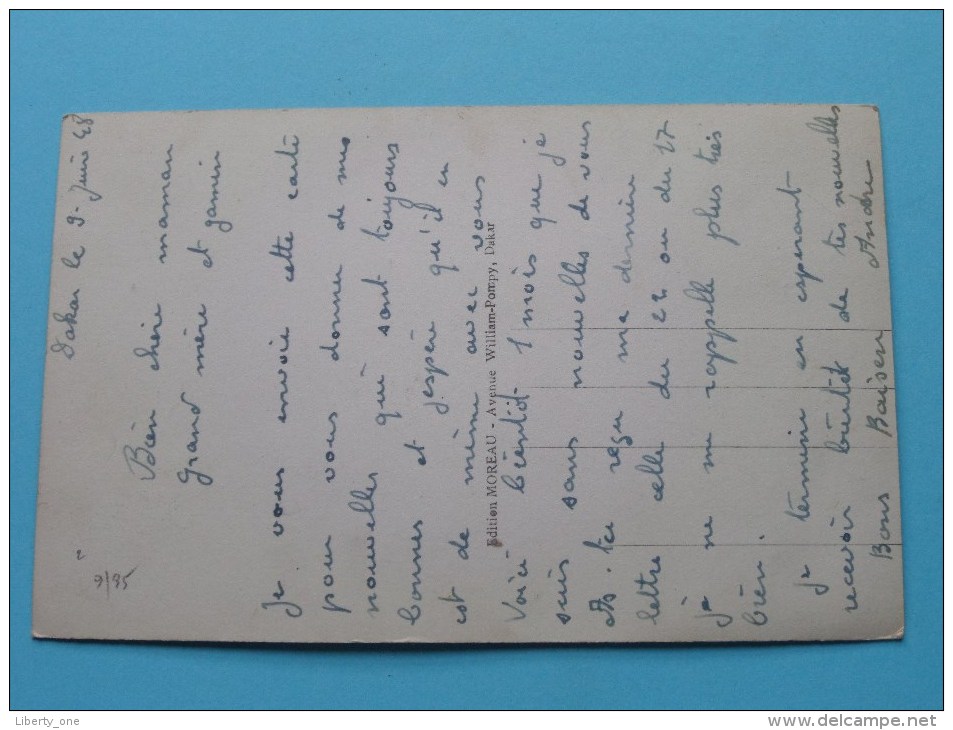 Dakar le 9-Juin 48
Bien chère maman
Grand mère et gamin
Je vous envoie cette carte
pour vous donner de mes
nouvelles qui sont toujours
bonnes et j'espère qu'il en
est de même avec vous
Edition MOREAU - Avenue William-Pompy, Dakar
Voici bientôt 1 mois que je
suis sans nouvelles de vous
As-tu reçu ma dernière
lettre celle du 22 ou du 27
je ne me rappelle plus très
bien.
Je termine en esperant
recevoir bientôt de tes nouvelles
Bons Baisers André
9/95
Liberty_one
www.delcampe.net